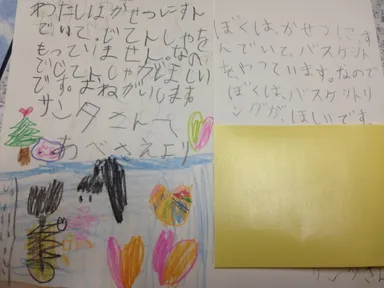 わたしはかせつにすん
でいて、じてんしゃを
もっていません。なの
でじてんしゃがほしい
です。おねがいします
サンタさんへ
あべさえより
ぼくは、かせつにす
んでいて、バスケット
をやっています。なので
ぼくは、バスケットリ
ングが、ほしいです